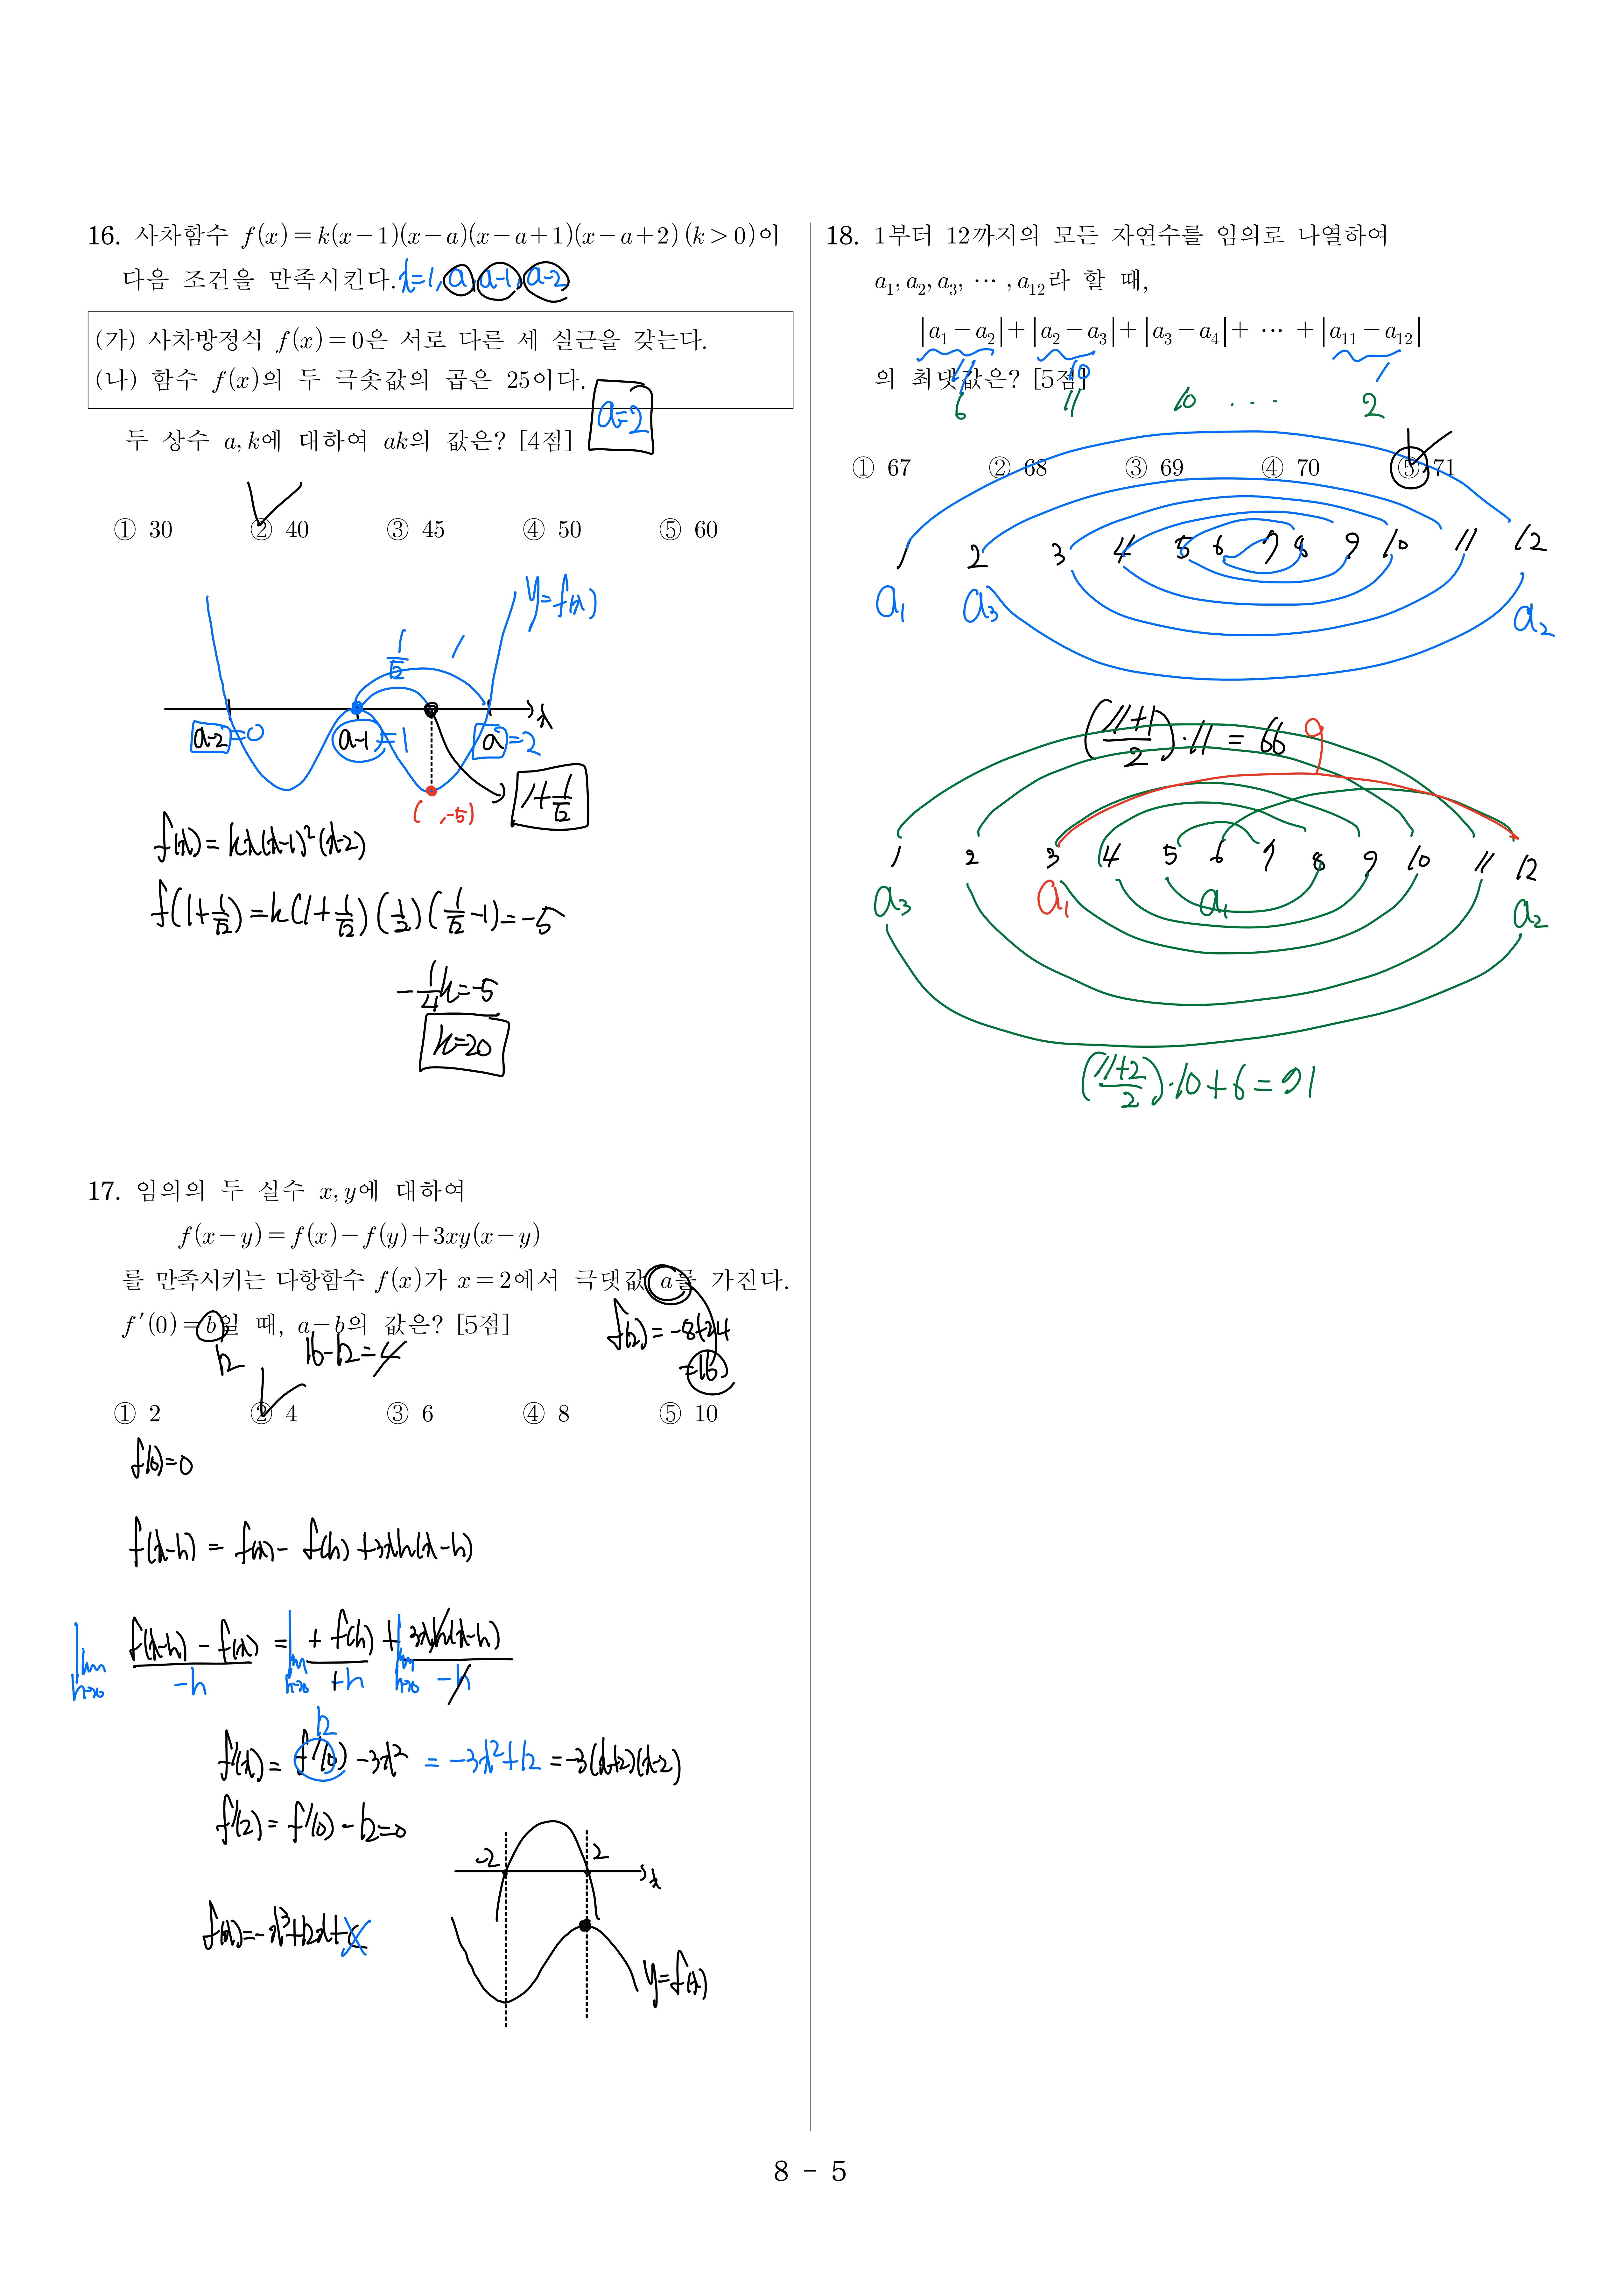 16. 사차함수 f(x)=k(x-1)(x-a)(x-a+1)(x-a+2) (k>0)이
다음 조건을 만족시킨다. x=1, a, a-1, a-2
(가) 사차방정식 f(x)=0은 서로 다른 세 실근을 갖는다.
(나) 함수 f(x)의 두 극솟값의 곱은 25이다.
a=2
두 상수 a, k에 대하여 ak의 값은? [4점]
① 30 ② 40 ③ 45 ④ 50 ⑤ 60
y=f(x)
1/√2 1
a-2=0 a-1=1 a=2 x
( ,-5) 1+1/√2
f(x)=kx(x-1)²(x-2)
f(1+1/√2)=k(1+1/√2)(1/2)(1/√2-1)=-5
-1/4k=-5
k=20
17. 임의의 두 실수 x, y에 대하여
f(x-y)=f(x)-f(y)+3xy(x-y)
를 만족시키는 다항함수 f(x)가 x=2에서 극댓값 a를 가진다.
f′(0)=b일 때, a-b의 값은? [5점]
f(2)=-8+24
=16
12 16-12=4
① 2 ② 4 ③ 6 ④ 8 ⑤ 10
f(0)=0
f(x-h)=f(x)-f(h)+3xh(x-h)
lim h→0 (f(x-h)-f(x))/-h = lim h→0 +f(h)/+h + lim h→0 3xh(x-h)/-h
12
f′(x)=f′(0)-3x² =-3x²+12=-3(x+2)(x-2)
f′(2)=f′(0)-12=0
-2 2 x
f(x)=-x³+12x+c
y=f(x)
18. 1부터 12까지의 모든 자연수를 임의로 나열하여
a₁, a₂, a₃, ⋯ , a₁₂라 할 때,
|a₁-a₂|+|a₂-a₃|+|a₃-a₄|+ ⋯ +|a₁₁-a₁₂|
의 최댓값은? [5점]
11 10 1
6 11 10 ... 2
① 67 ② 68 ③ 69 ④ 70 ⑤ 71
1 2 3 4 5 6 7 8 9 10 11 12
a₁ a₃ a₂
((11+1)/2)·11=66 9
1 2 3 4 5 6 7 8 9 10 11 12
a₃ a₁ a₁ a₂
((11+2)/2)·10+6=71
8 - 5